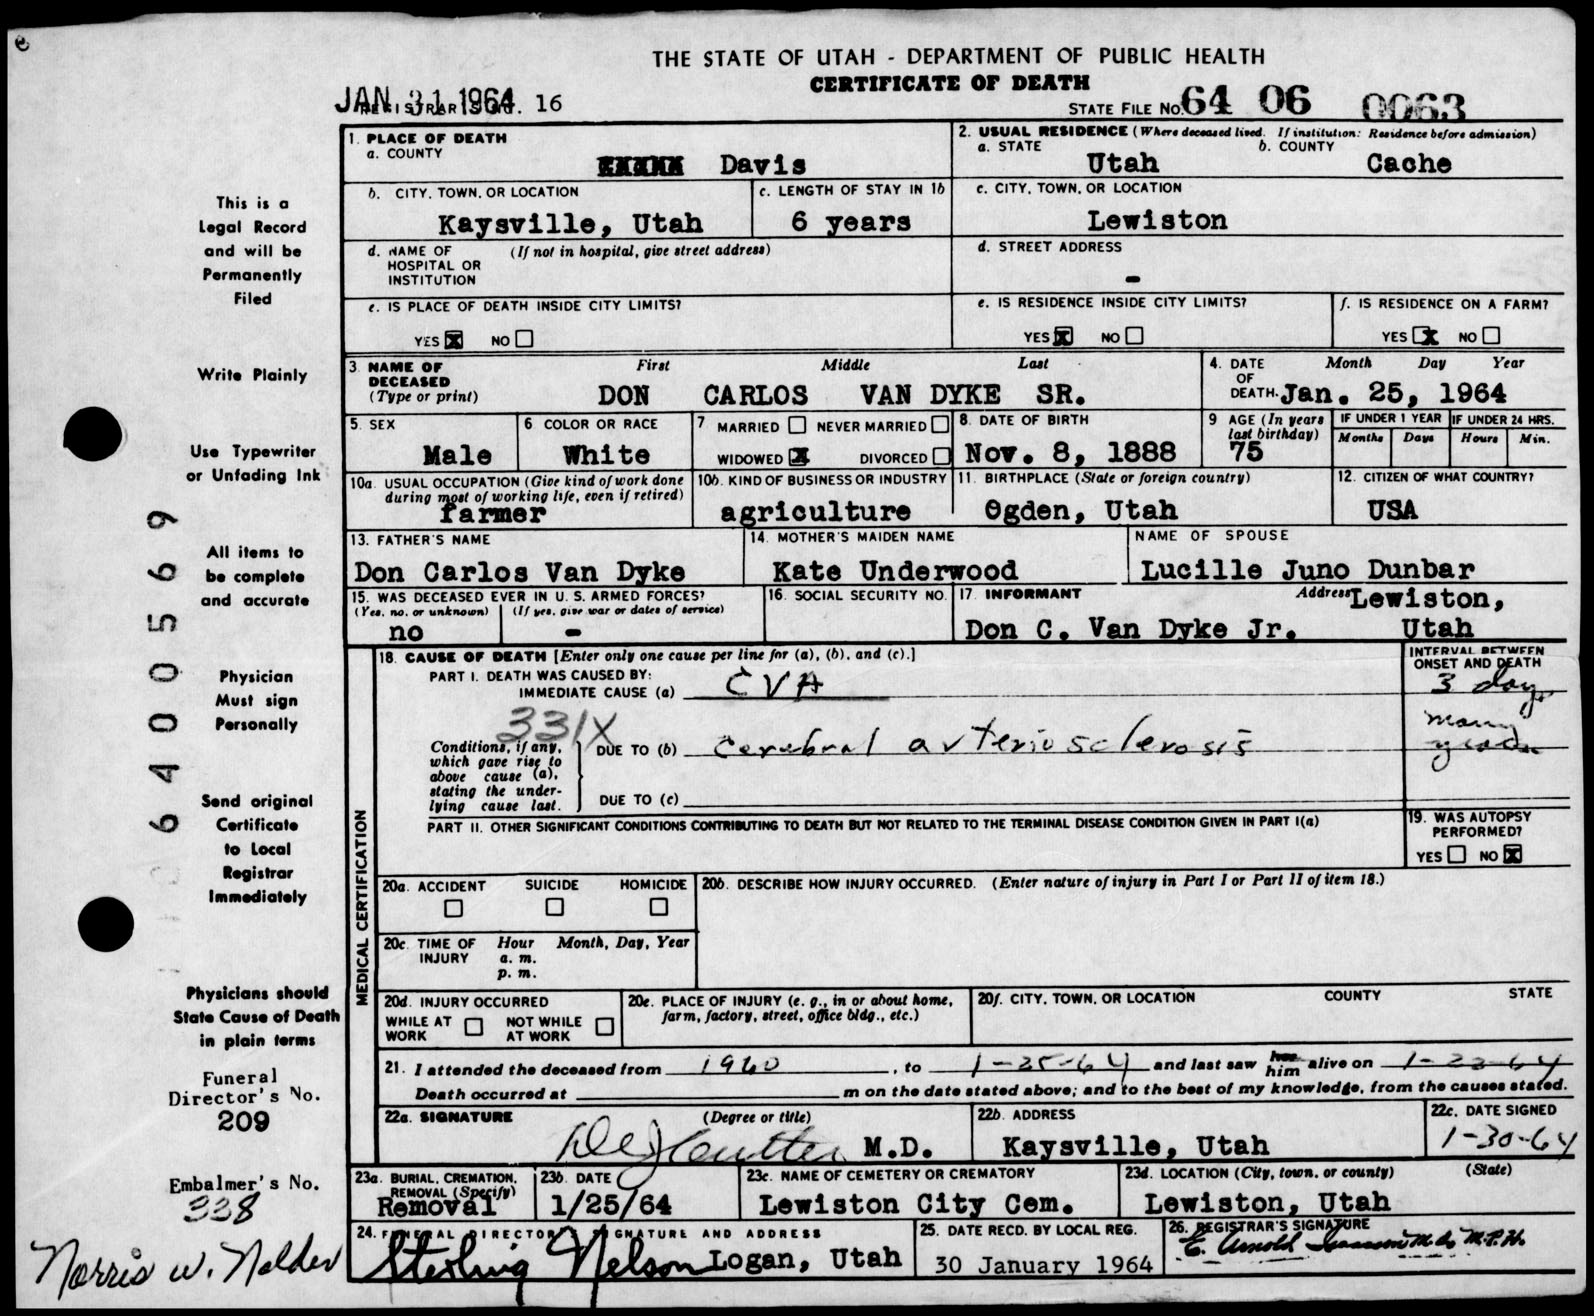 THE STATE OF UTAH - DEPARTMENT OF PUBLIC HEALTH
CERTIFICATE OF DEATH
JAN 31 1964 16
STATE FILE NO. 64 06 0063
1. PLACE OF DEATH
a. COUNTY
Davis
2. USUAL RESIDENCE (Where deceased lived. If institution: Residence before admission)
a. STATE
Utah
b. COUNTY
Cache
b. CITY, TOWN, OR LOCATION
Kaysville, Utah
c. LENGTH OF STAY IN 1b
6 years
c. CITY, TOWN, OR LOCATION
Lewiston
d. NAME OF HOSPITAL OR INSTITUTION
(If not in hospital, give street address)
d. STREET ADDRESS
-
e. IS PLACE OF DEATH INSIDE CITY LIMITS?
YES X NO
e. IS RESIDENCE INSIDE CITY LIMITS?
YES X NO
f. IS RESIDENCE ON A FARM?
YES X NO
3. NAME OF DECEASED (Type or print)
First Middle Last
DON CARLOS VAN DYKE SR.
4. DATE OF DEATH. Month Day Year
Jan. 25, 1964
5. SEX
Male
6 COLOR OR RACE
White
7 MARRIED NEVER MARRIED
WIDOWED X DIVORCED
8. DATE OF BIRTH
Nov. 8, 1888
9 AGE (In years last birthday)
75
IF UNDER 1 YEAR
Months Days
IF UNDER 24 HRS.
Hours Min.
10a. USUAL OCCUPATION (Give kind of work done during most of working life, even if retired)
farmer
10b. KIND OF BUSINESS OR INDUSTRY
agriculture
11. BIRTHPLACE (State or foreign country)
Ogden, Utah
12. CITIZEN OF WHAT COUNTRY?
USA
13. FATHER'S NAME
Don Carlos Van Dyke
14. MOTHER'S MAIDEN NAME
Kate Underwood
NAME OF SPOUSE
Lucille Juno Dunbar
15. WAS DECEASED EVER IN U. S. ARMED FORCES?
(Yes, no, or unknown) (If yes, give war or dates of service)
no -
16. SOCIAL SECURITY NO.
17. INFORMANT
Don C. Van Dyke Jr.
Address Lewiston,
Utah
MEDICAL CERTIFICATION
18. CAUSE OF DEATH [Enter only one cause per line for (a), (b), and (c).]
INTERVAL BETWEEN ONSET AND DEATH
PART I. DEATH WAS CAUSED BY:
IMMEDIATE CAUSE (a) CVA
3 days
331X
Conditions, if any, which gave rise to above cause (a), stating the underlying cause last.
DUE TO (b) Cerebral arteriosclerosis
many years
DUE TO (c)
PART II. OTHER SIGNIFICANT CONDITIONS CONTRIBUTING TO DEATH BUT NOT RELATED TO THE TERMINAL DISEASE CONDITION GIVEN IN PART I(a)
19. WAS AUTOPSY PERFORMED?
YES NO X
20a. ACCIDENT SUICIDE HOMICIDE
20b. DESCRIBE HOW INJURY OCCURRED. (Enter nature of injury in Part I or Part II of item 18.)
20c. TIME OF INJURY Hour Month, Day, Year
a. m.
p. m.
20d. INJURY OCCURRED
WHILE AT WORK NOT WHILE AT WORK
20e. PLACE OF INJURY (e. g., in or about home, farm, factory, street, office bldg., etc.)
20f. CITY, TOWN, OR LOCATION COUNTY STATE
21. I attended the deceased from 1960, to 1-25-64 and last saw her him alive on 1-23-64
Death occurred at m on the date stated above; and to the best of my knowledge, from the causes stated.
22a. SIGNATURE (Degree or title)
M.D.
22b. ADDRESS
Kaysville, Utah
22c. DATE SIGNED
1-30-64
23a. BURIAL, CREMATION, REMOVAL (Specify)
Removal
23b. DATE
1/25/64
23c. NAME OF CEMETERY OR CREMATORY
Lewiston City Cem.
23d. LOCATION (City, town, or county) (State)
Lewiston, Utah
24. FUNERAL DIRECTOR'S SIGNATURE AND ADDRESS
Sterling Nelson Logan, Utah
25. DATE RECD. BY LOCAL REG.
30 January 1964
26. REGISTRAR'S SIGNATURE
E. Arnold Isaacson M.D. M.P.H.
This is a
Legal Record
and will be
Permanently
Filed
Write Plainly
Use Typewriter
or Unfading Ink
All items to
be complete
and accurate
Physician
Must sign
Personally
Send original
Certificate
to Local
Registrar
Immediately
Physicians should
State Cause of Death
in plain terms
Funeral
Director's No.
209
Embalmer's No.
338
Norris W. Nalder
6400569